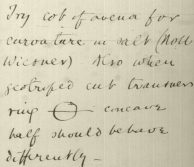 Try cot of avena for
curvature in salt (Noll
Wiesner) Also when
geotroped cut transvers
ring concave
half should behave
differently —